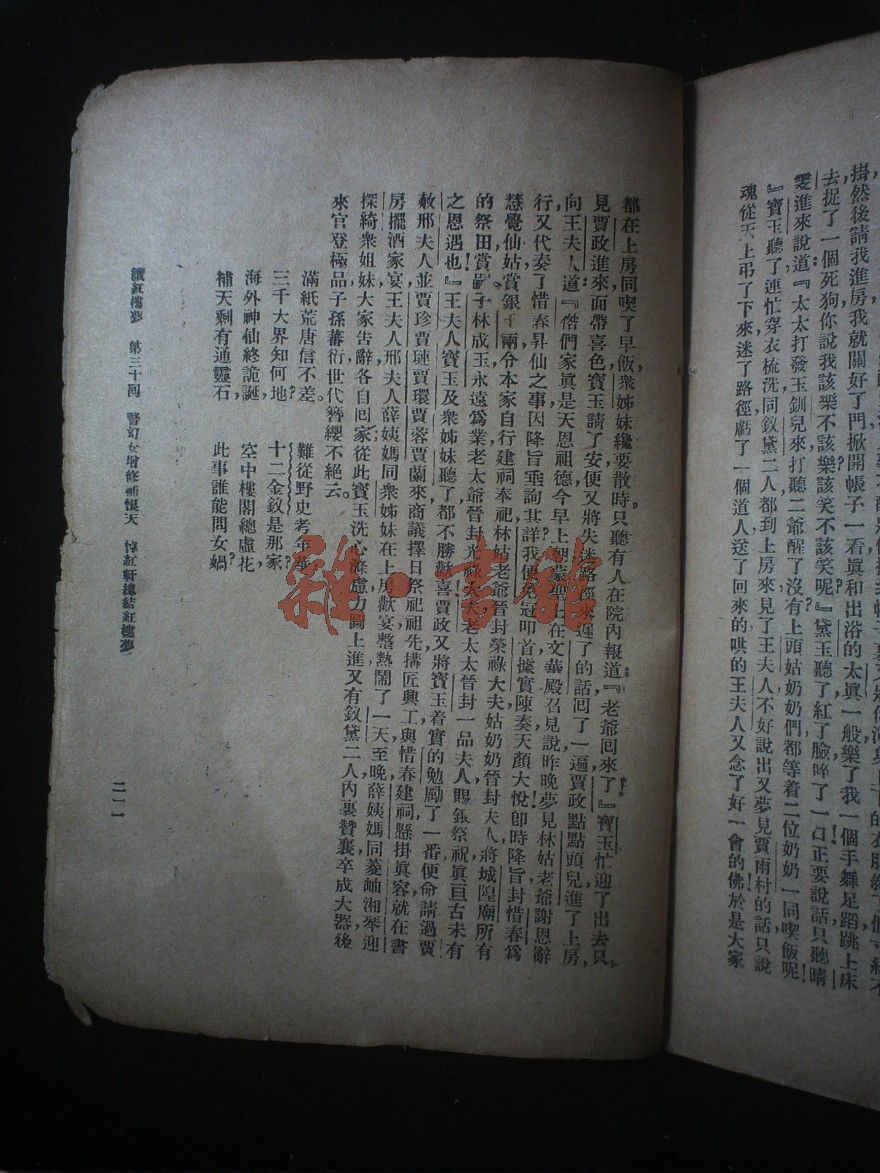 掛然後請我進房我就關好了門掀開帳子一看真和出浴的太真一般樂了我一個手舞足蹈跳上床
去捉了一個死狗你說我該樂不該樂該笑不該笑呢』黛玉聽了紅了臉啐了一口正要說話只聽晴
雯進來說道『太太打發玉釧兒來打聽二爺醒了沒有上頭姑奶奶們都等着二位奶奶一同喫飯呢
』寶玉聽了連忙穿衣梳洗同釵黛二人都到上房來見了王夫人不好說出又夢見賈雨村的話只說
魂從天上弔了下來迷了路徑虧了一個道人送了回來的哄的王夫人又念了好一會的佛於是大家
都在上房同喫了早飯衆姊妹纔要散時只聽有人在院內報道『老爺囘來了』寶玉忙迎了出去只
見賈政進來面帶喜色寶玉請了安便又將失迷路徑來遲了的話囘了一遍賈政點點頭兒進了上房
向王夫人道『偺們家真是天恩祖德今早上朝蒙聖上在文華殿召見說昨晚夢見林姑老爺謝恩辭
行又代奏了惜春昇仙之事因降旨垂詢其詳我便免冠叩首據實陳奏天顏大悅卽時降旨封惜春爲
慧覺仙姑賞銀千兩令本家自行建祠奉祀林姑老爺晉封榮祿大夫姑奶奶晉封夫人將城隍廟所有
的祭田賞嗣子林成玉永遠爲業老太爺晉封光祿大夫老太太晉封一品夫人賜銀祭祝真亘古未有
之恩遇也』王夫人寶玉及衆姊妹聽了都不勝歡喜賈政又將寶玉着實的勉勵了一番便命請過賈
赦邢夫人並賈珍賈璉賈環賈蓉賈蘭來商議擇日祭祀祖先搆匠興工與惜春建祠懸掛真容就在書
房擺酒家宴王夫人邢夫人薛姨媽同衆姊妹在上房歡宴整熱鬧了一天至晚薛姨媽同菱岫湘琴迎
探綺衆姐妹大家告辭各自囘家從此寶玉洗心滌慮力圖上進又有釵黛二人內裏贊襄卒成大器後
來官登極品子孫蕃衍世代簪纓不絕云。
滿紙荒唐信不差。 難從野史考年華
三千大界知何地? 十二金釵是那家?
海外神仙終詭誕, 空中樓閣總虛花
補天剩有通靈石, 此事誰能問女媧?
續紅樓夢 第三十囘 警幻女增修補恨天 悼紅軒總結紅樓夢
二一一
雜·書館